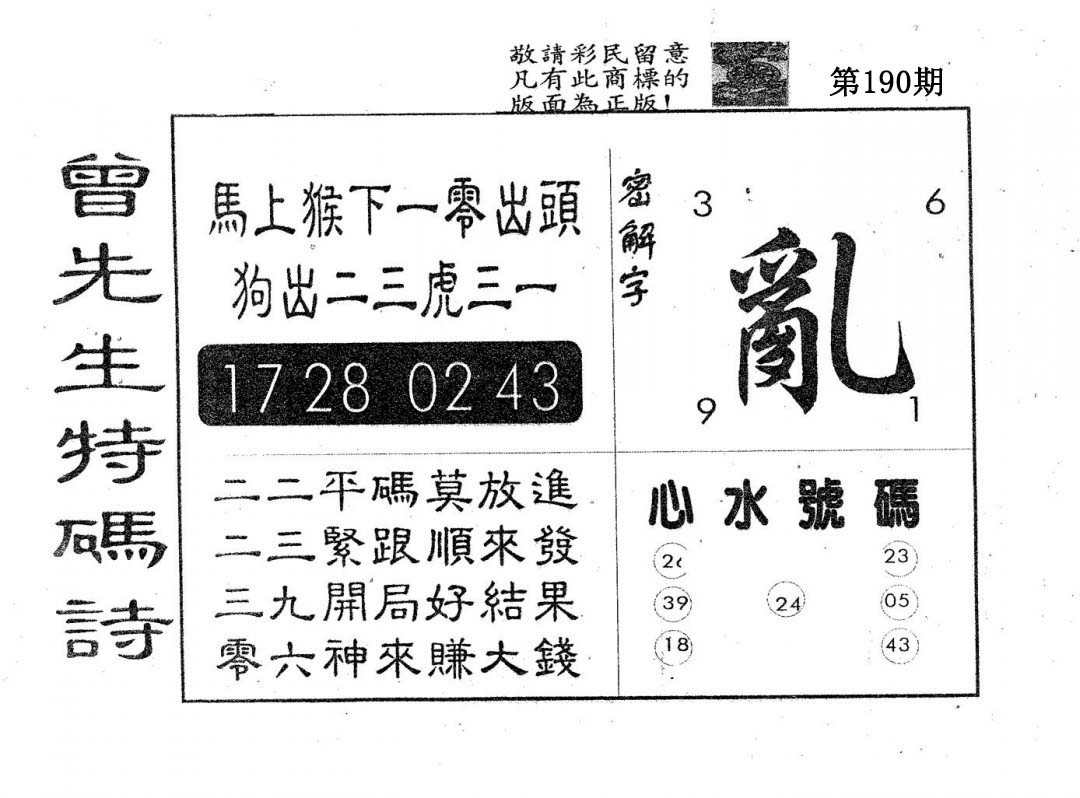 敬請彩民留意
凡有此商標的
版面為正版!
第190期
曾先生特碼詩
馬上猴下一零出頭
狗出二三虎三一
17 28 02 43
密解字
3 6
亂
9 1
二二平碼莫放進
二三緊跟順來發
三九開局好結果
零六神來賺大錢
心水號碼
26 23
39 24 05
18 43